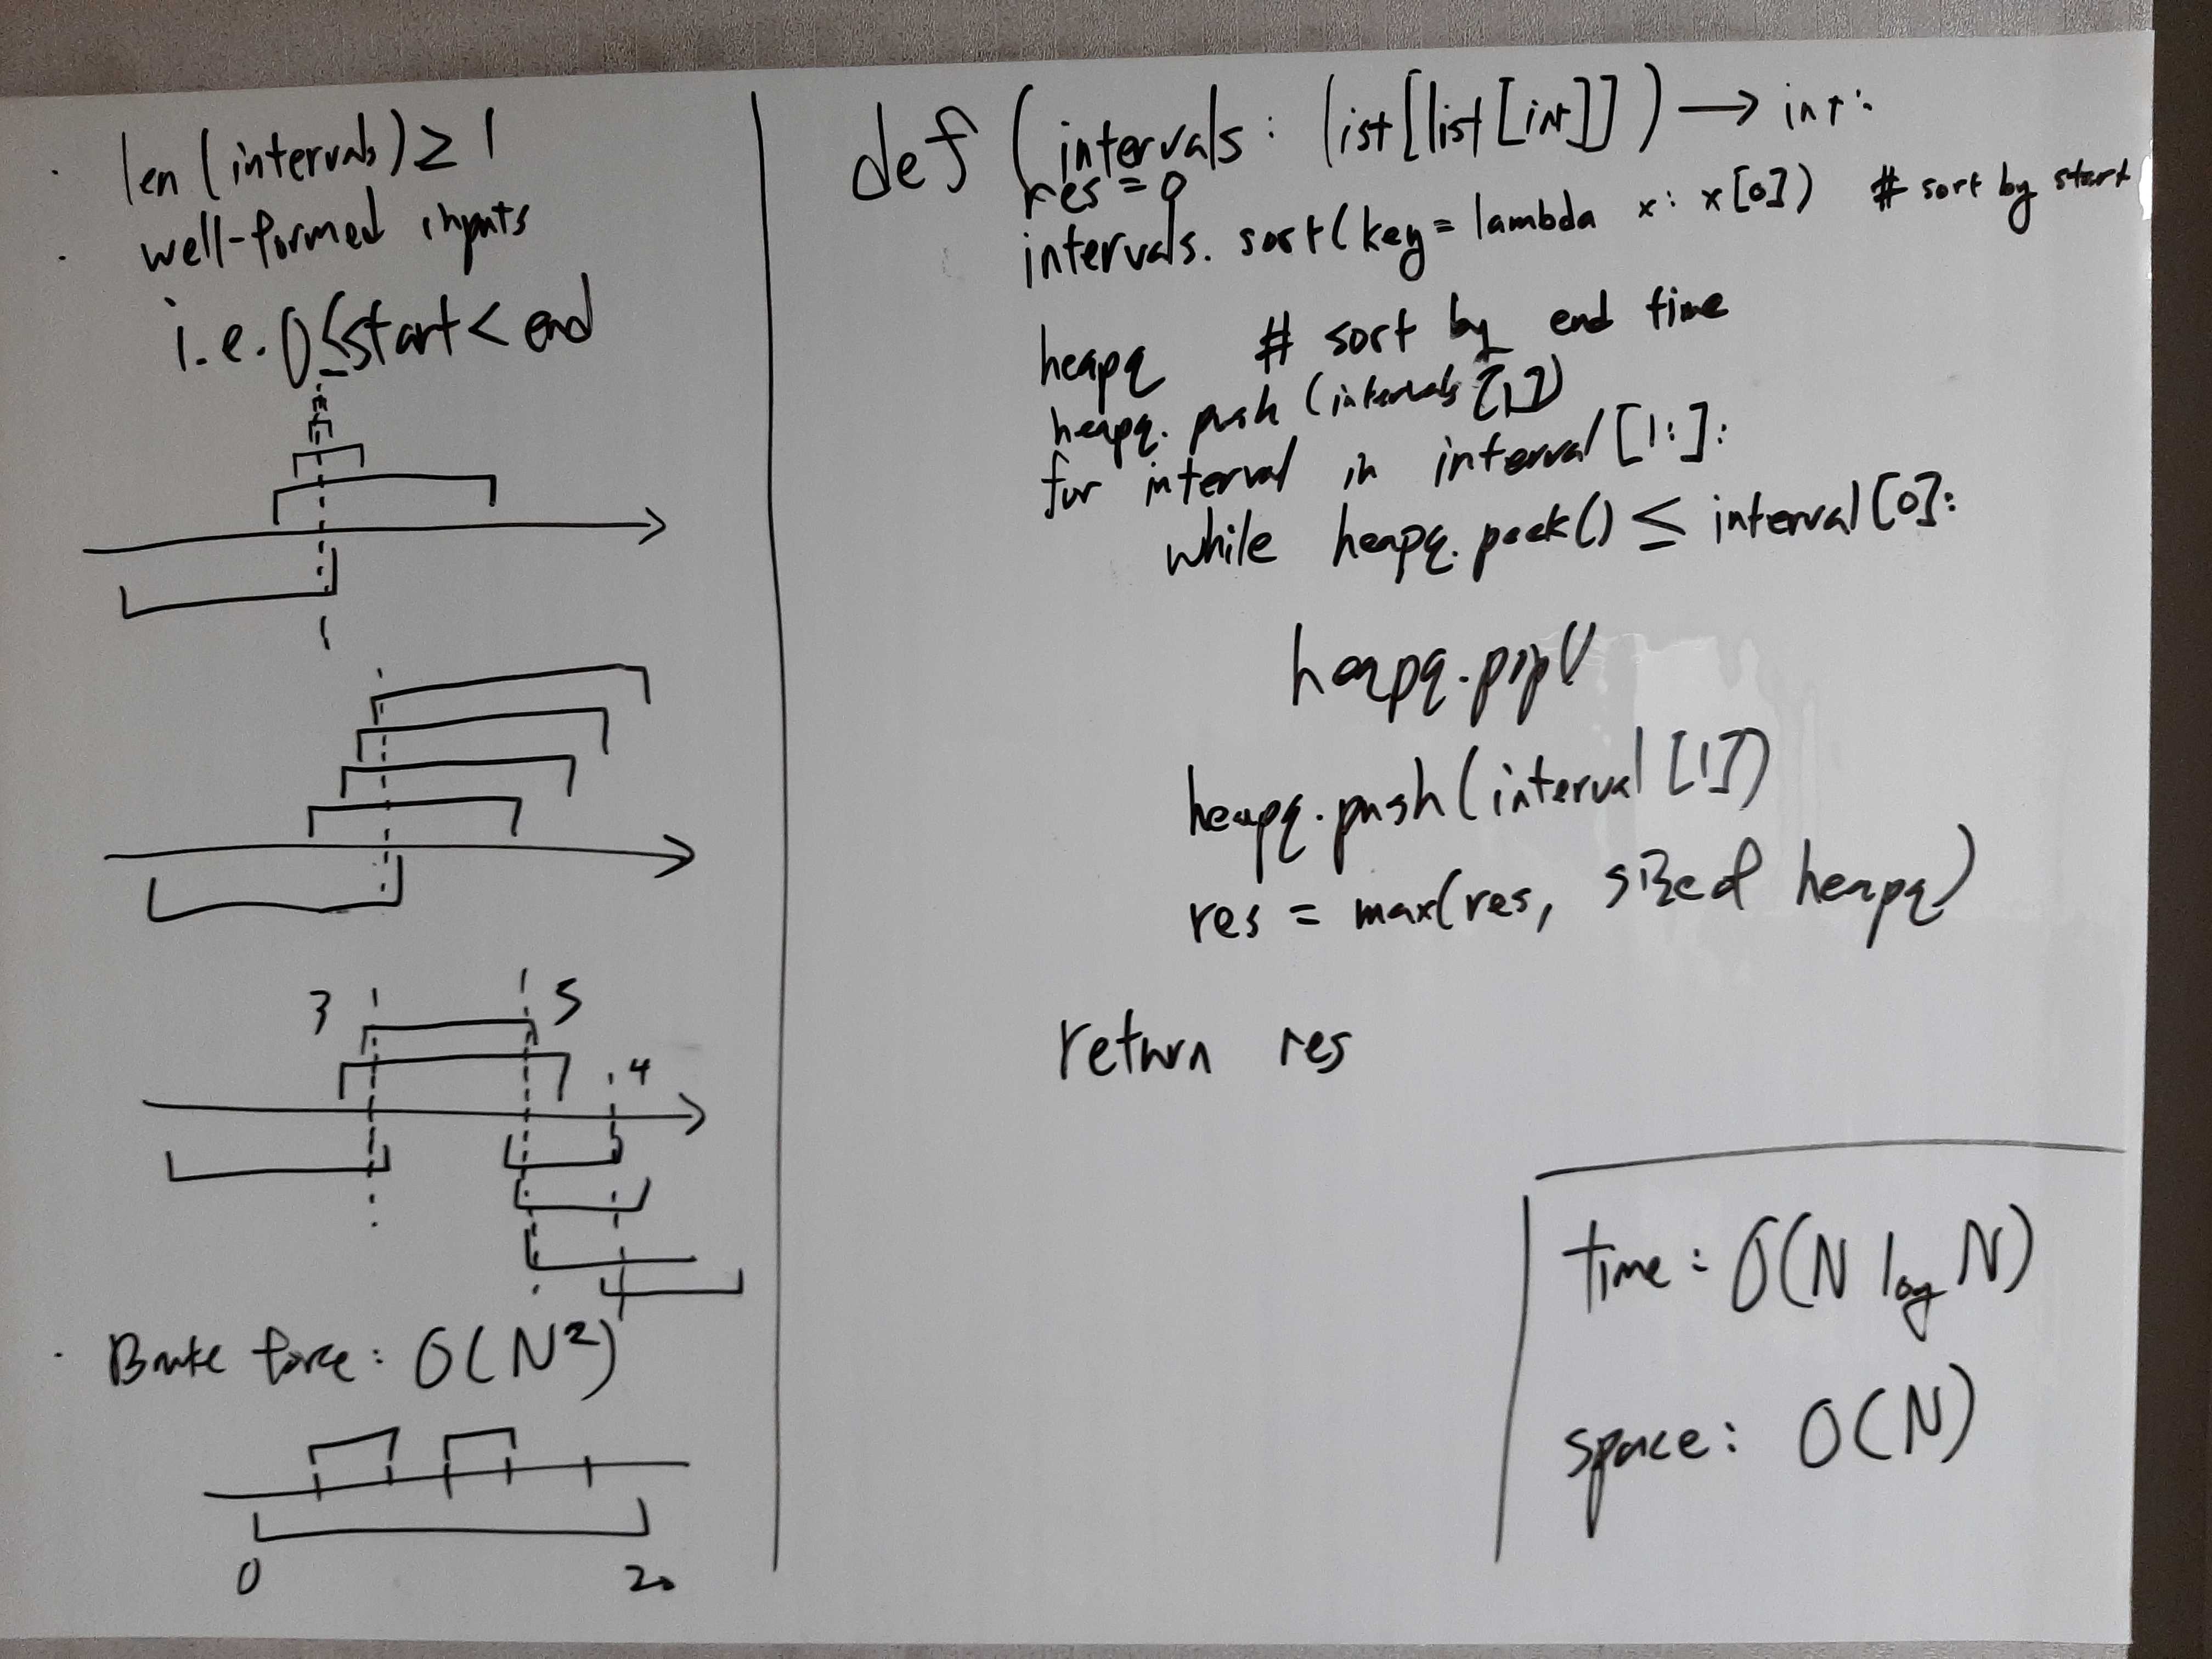 · len(intervals) ≥ 1
· well-formed inputs
i.e. 0 ≤ start < end
3
5
4
· Brute force: O(N²)
0
20
def (intervals: list[list[int]]) → int:
res = 0
intervals. sort(key = lambda x: x[0]) # sort by start
heapq # sort by end time
heapq. push (intervals [1])
for interval in interval [1:]:
while heapq. peek() ≤ interval [0]:
heapq.pop()
heapq.push(interval [1])
res = max(res, sized heapq)
return res
time: O(N log N)
space: O(N)